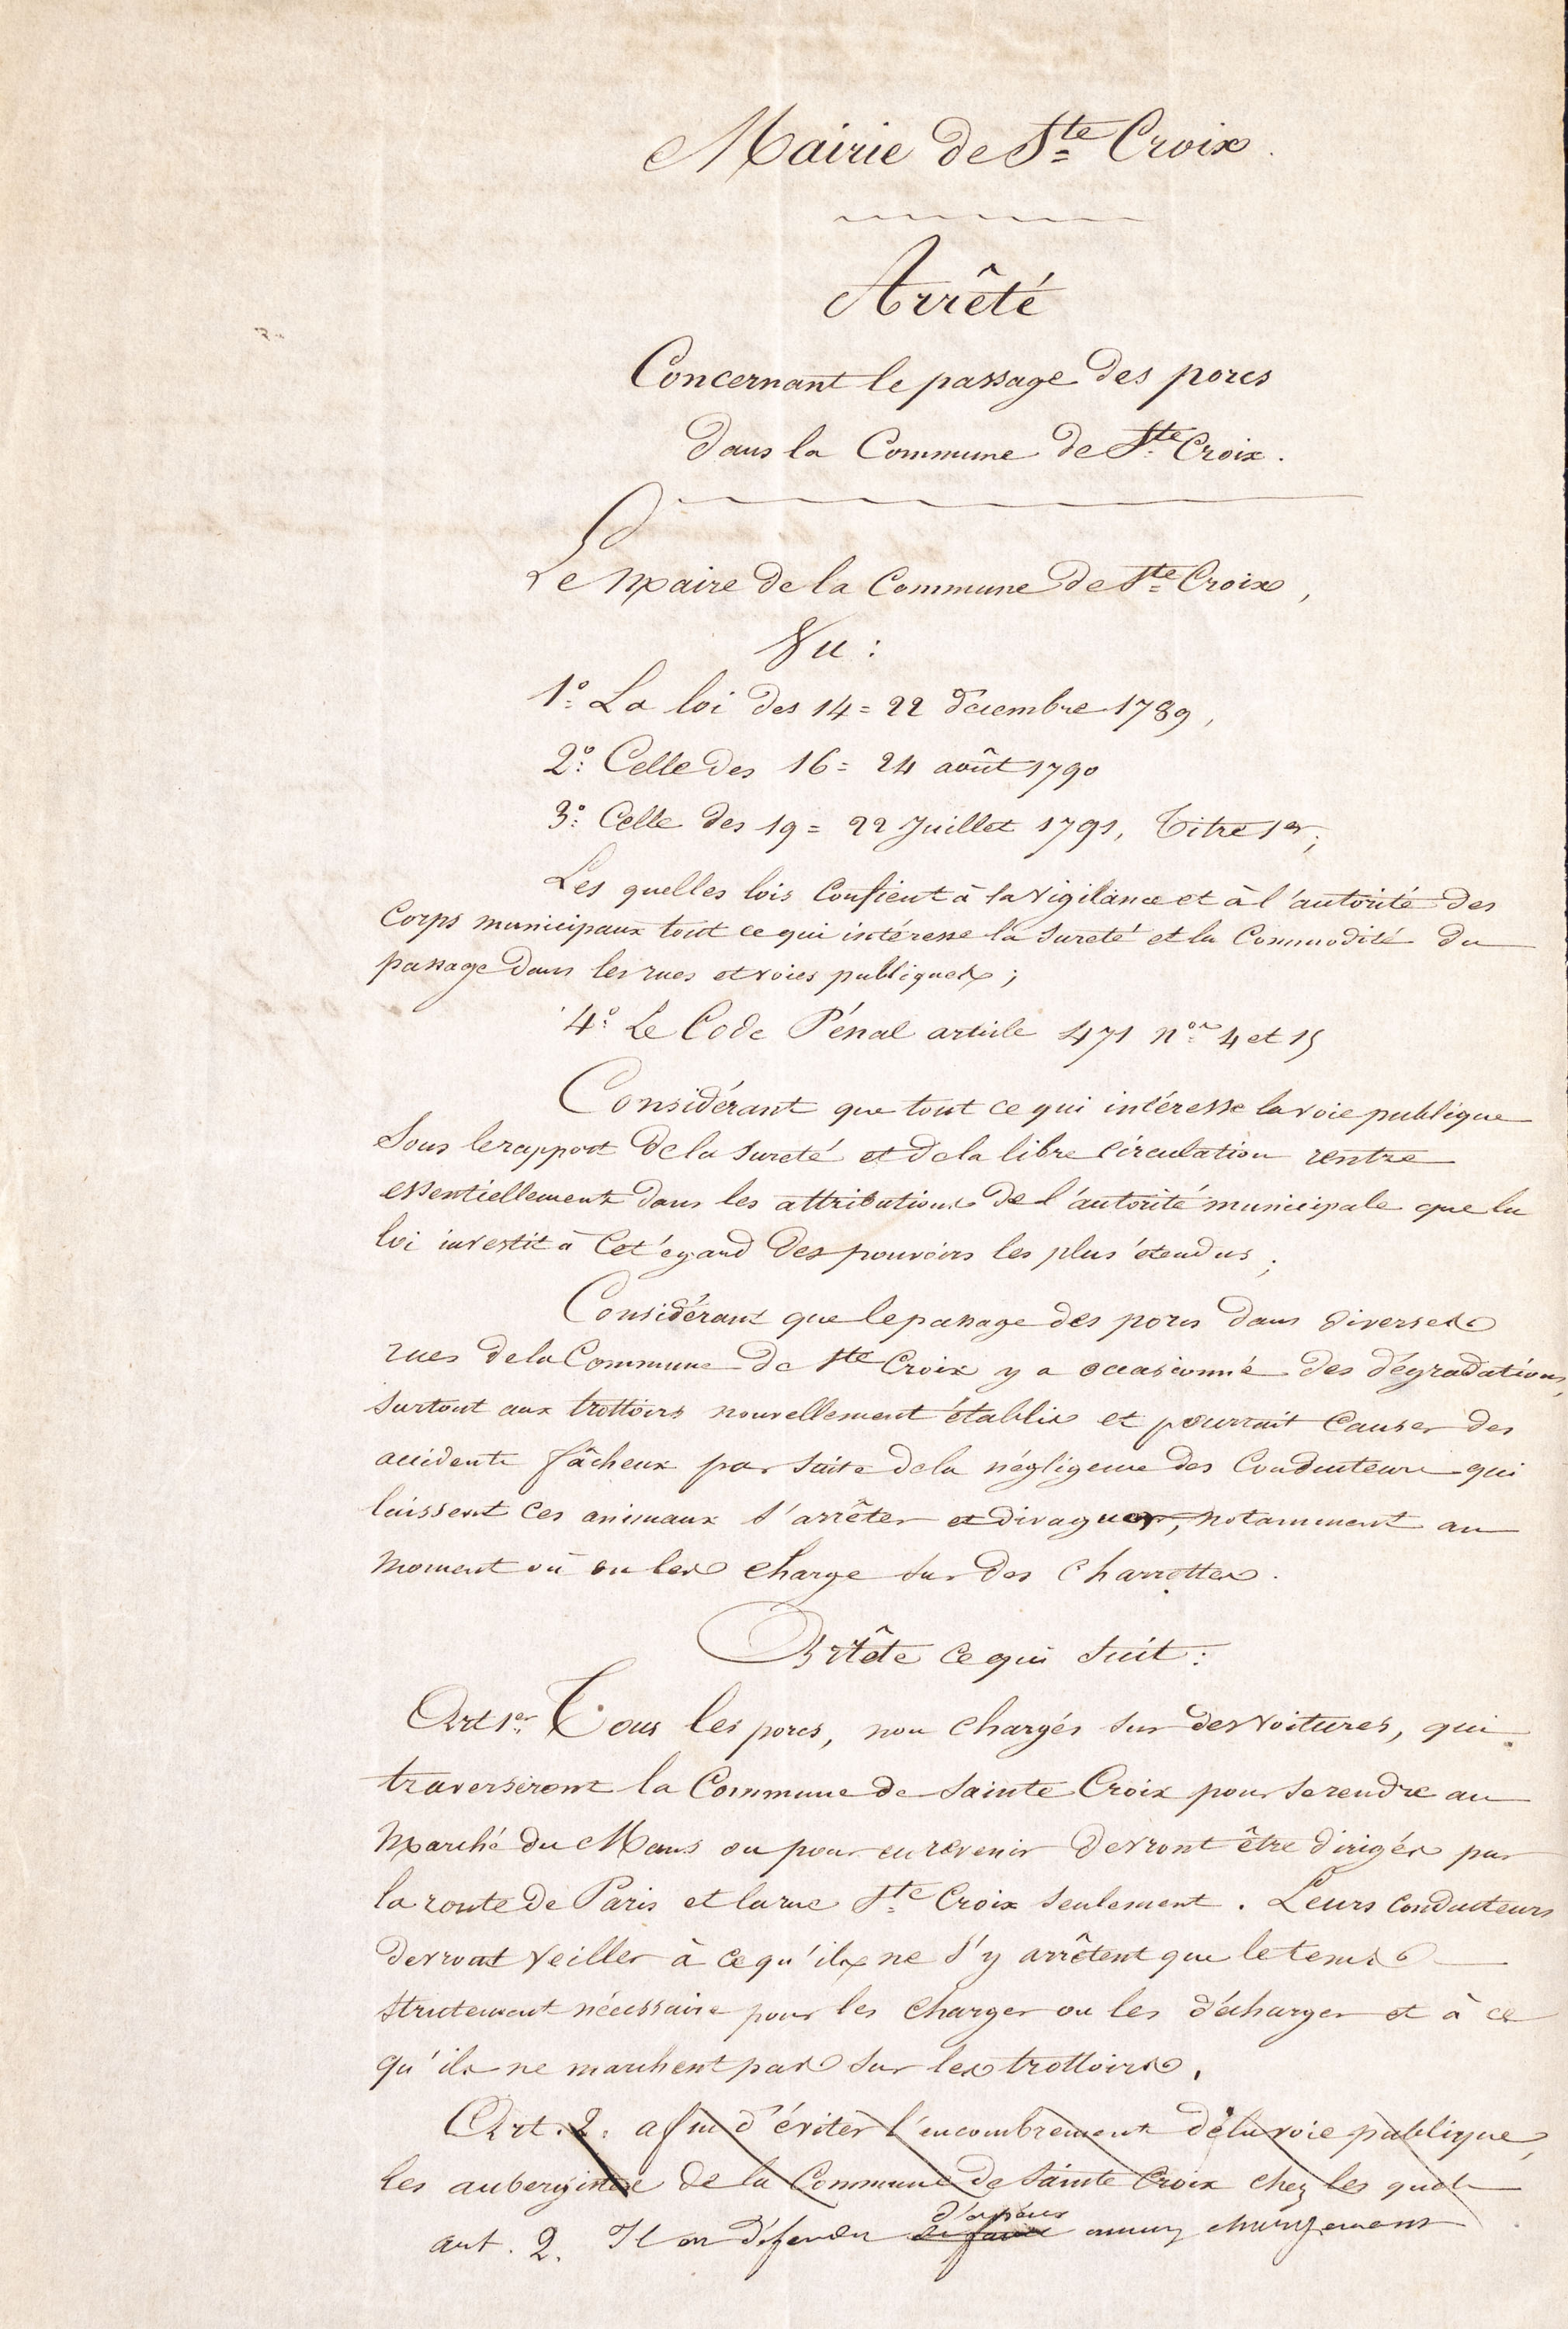 Mairie de Ste Croix.
Arrêté
Concernant le passage des porcs
dans la Commune de Ste Croix.
Le Maire de la Commune de Ste Croix,
Vu :
1º La loi des 14 = 22 décembre 1789,
2º Celle des 16 = 24 août 1790
3º Celle des 19 = 22 Juillet 1791, Titre 1er;
Les quelles lois confient à la vigilance et à l'autorité des
Corps municipaux tout ce qui intéresse la sureté et la Commodité du
passage dans les rues et voies publiques ;
4º Le Code Pénal article 471 nos 4 et 15
Considérant que tout ce qui intéresse la voie publique
sous le rapport de la sureté et de la libre circulation rentre
essentiellement dans les attributions de l'autorité municipale que la
loi investit à cet égard des pouvoirs les plus étendus ;
Considérant que le passage des porcs dans diverses
rues de la Commune de Ste Croix y a occasionné des dégradations,
surtout aux trottoirs nouvellement établis et pourrait causer des
accidents fâcheux par suite de la négligence des Conducteurs qui
laissent ces animaux s'arrêter et divaguer, notamment au
moment où on les charge sur des charrettes.
Arrête ce qui suit :
Art 1er Tous les porcs, non chargés sur des voitures, qui
traverseront la Commune de Sainte Croix pour se rendre au
Marché du Mans ou pour en revenir devront être dirigés par
la route de Paris et la rue Ste Croix seulement. Leurs conducteurs
devront veiller à ce qu'ils ne s'y arrêtent que le tems
strictement nécessaire pour les charger ou les décharger et à ce
qu'ils ne marchent pas sur les trottoirs.
Art. 2. afin d'éviter l'encombrement de la voie publique,
les aubergistes de la Commune de Sainte Croix chez les quels
d'opérer
art. 2. Il est défendu de faire aucun chargement